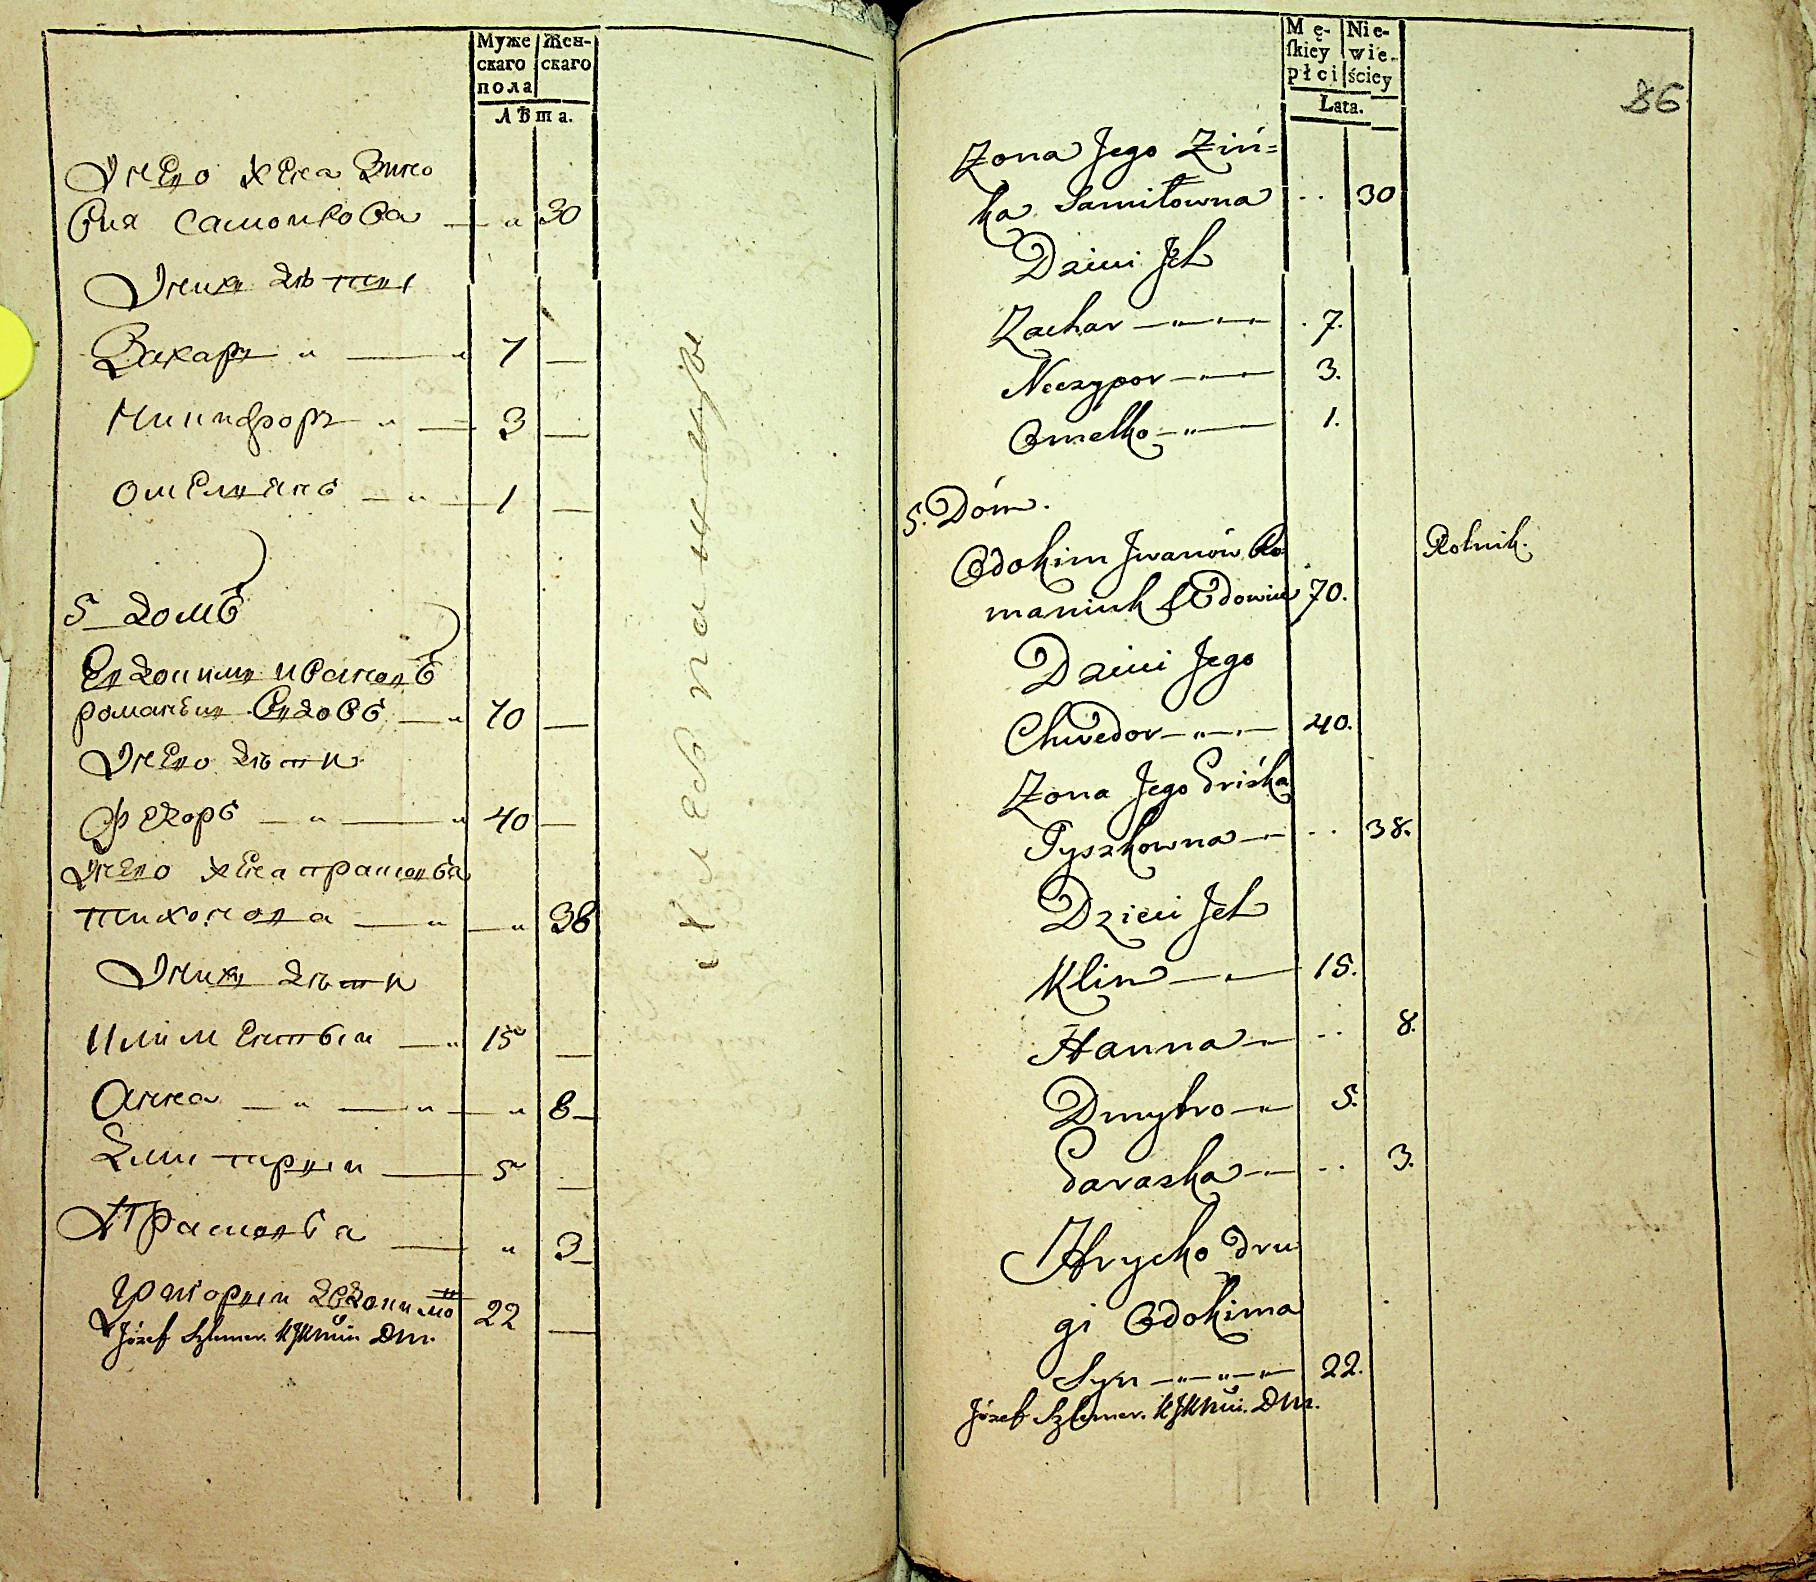 Муже
скаго
пола
Жен-
скаго
Лѣта.
Унего жена Зино
вия Самойлова — „ 30
Унихъ дѣти
Захаръ „ — „ 7 —
Никифоръ „ — 3 —
Омельянъ — „ — 1 —
5 домъ
Евдокимъ Ивановъ
Романюк Вдовъ — „ 70 —
Унего дѣти
Федоръ — „ — „ 40 —
Унего жена Прасковья
Тихонова — „ — „ 38
Унихъ дѣти
Климентьи — „ 15 —
Анна — „ — „ — „ 8 —
Дмитреи — 5 —
Прасковья — „ 3 —
Григореи 22 —
Józef
Хлебопашцы
Mę-
skiey
płci
Nie-
wie-
ściey
Lata.
86
Żona Jego Ziń=
ka Samiłowna .. 30
Dzieci Jch
Zachar — „ — „ — . 7.
Neczypor — „ — 3.
Omelko — „ — 1.
5. Dóm.
Odokim Jwanów Ro
maniuk Wdowiec 70.
Rolnik.
Dzieci Jego
Chwedor — „ — „ — 40.
Żona Jego Priśka
Tyszkowna — .. 38.
Dzieci Jch
Klim — „ — 15.
Hanna — „ — .. 8.
Dmytro — „ — 5.
Paraska — „ — .. 3.
Hrycko dru
gi Odokima
Syn — „ — „ — „ — 22.
Józef